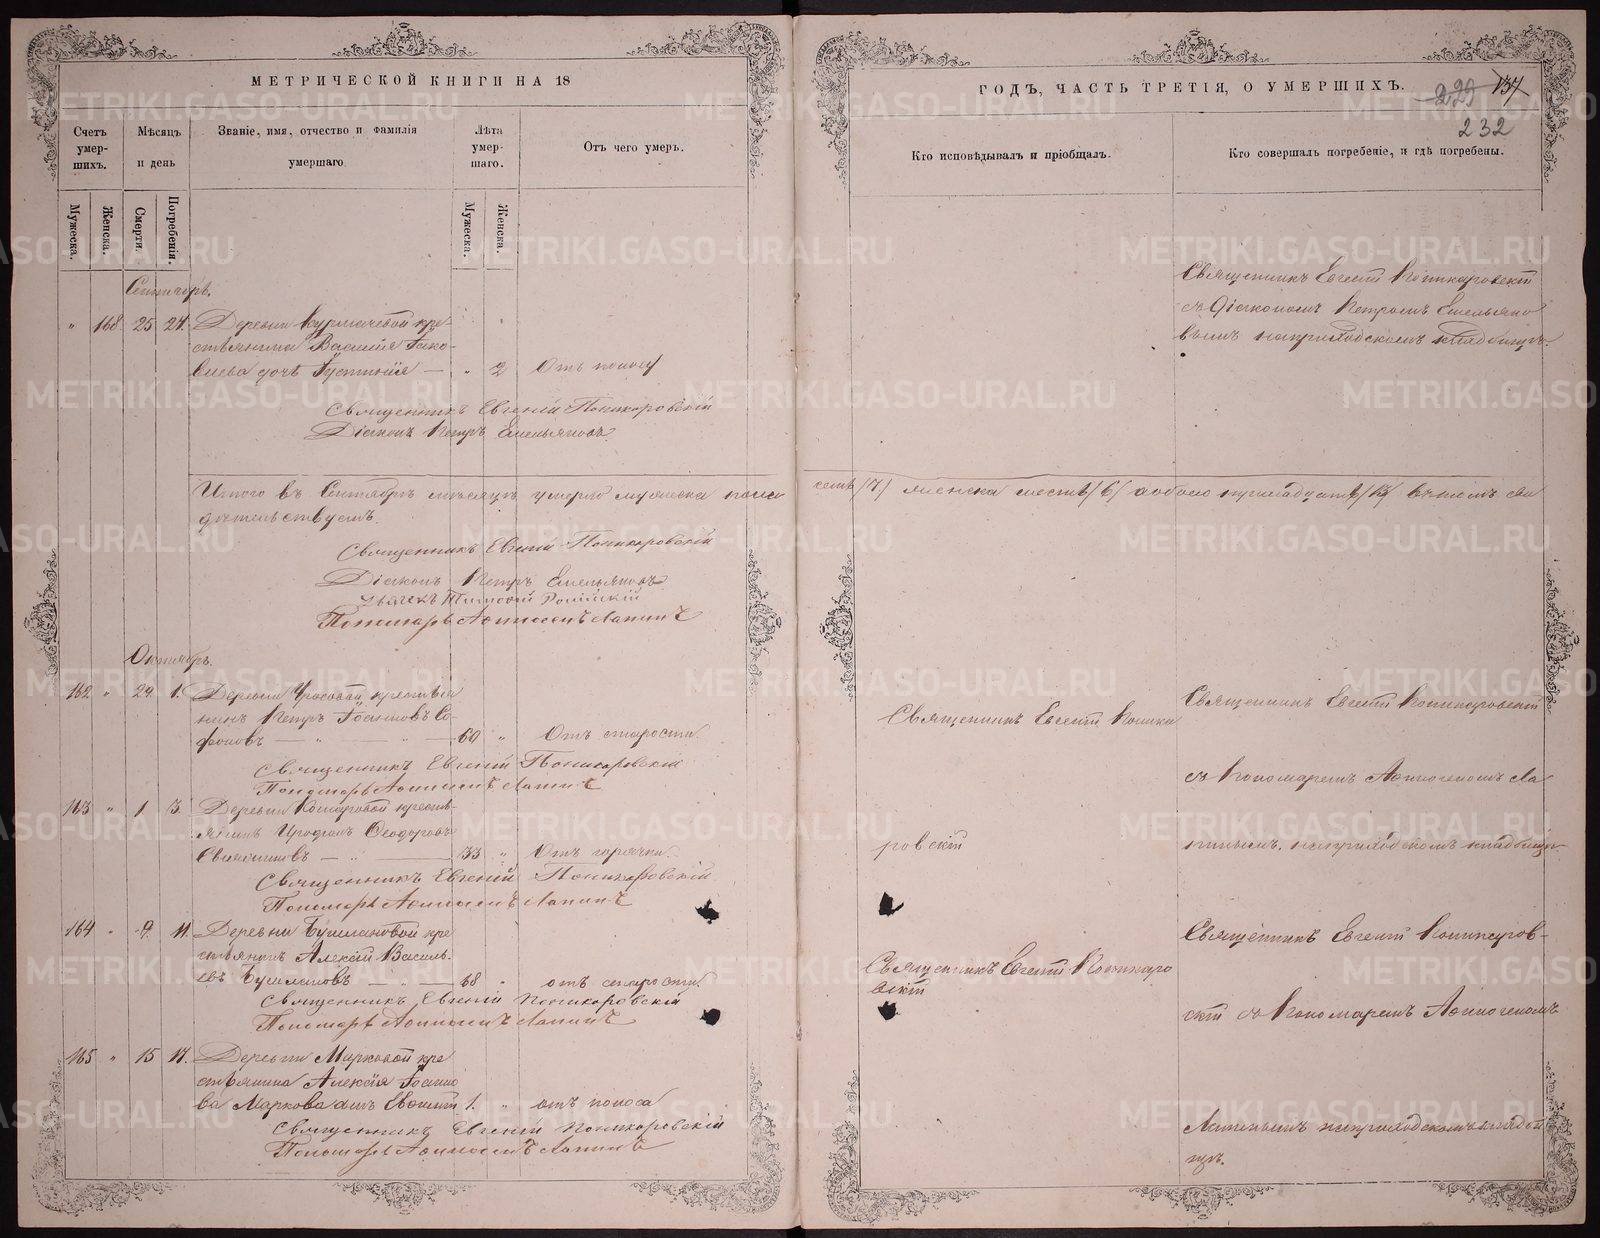 МЕТРИЧЕСКОЙ КНИГИ НА 18
Счетъ умер- шихъ.
Мѣсяцъ и день
Званіе, имя, отчество и фамилія умершаго.
Лѣта умер- шаго.
Отъ чего умеръ.
Мужеска.
Женска.
Смерти.
Погребенія.
Мужеска.
Женска.
Сентябрь.
" 168 25 27. Деревни Бурмачевой кре-
стьянина Василія Іако-
влева дочь Іустинія — " 2 Отъ поносу
Священникъ Евгеній Поникаровскій
Діаконъ Петръ Емельяновъ
Итого въ Сентябрѣ мѣсяцѣ умерло мужеска пола
дѣтельствуемъ.
Священникъ Евгеній Поникаровскій
Діаконъ Петръ Емельяновъ
Пономарь Аѳиногенъ Лапинъ
Октябрь.
162 " 29 1. Деревни крестья
нинъ Петръ Іоанновъ Со-
фоновъ — " — " — 60 " Отъ старости.
Священникъ Евгеній Поникаровскій
Пономарь Аѳиногенъ Лапинъ
163 " 1 3. Деревни крестья-
нинъ Ѳеодоровъ
— " — 33 " Отъ горячки.
Священникъ Евгеній Поникаровскій
Пономарь Аѳиногенъ Лапинъ
164 " 9 11. Деревни Бушлановой кре
стьянинъ Алексій Василь-
евъ — 68 " отъ старости
Священникъ Евгеній Поникаровскій
Пономарь Аѳиногенъ Лапинъ
165 " 15 17. Деревни Марковой кре
стьянина Алексія Іоанно
ва Маркова сынъ 1. " отъ поноса
Священникъ Евгеній Поникаровскій
Пономарь Аѳиногенъ Лапинъ
ГОДЪ, ЧАСТЬ ТРЕТІЯ, О УМЕРШИХЪ.
229 137
232
Кто исповѣдывалъ и пріобщалъ.
Кто совершалъ погребеніе, и гдѣ погребены.
Священникъ Евгеній Поникаровскій
съ Діакономъ Петромъ Емельяно
вымъ на приходскомъ кладбищѣ.
семь /7/ женска шесть /6/ обоего тринадцать /13/ въ чемъ сви
Священникъ Евгеній Поника
ровскій
Священникъ Евгеній Поникаровскій
съ Пономаремъ Аѳиногеномъ Ла
пинымъ. на приходскомъ кладбищѣ
Священникъ Евгеній Поникаро
вскій
Священникъ Евгеній Поникаров-
скій съ Пономаремъ Аѳиногеномъ
Лапинымъ на приходскомъ кладби
щѣ.
METRIKI.GASO-URAL.RU